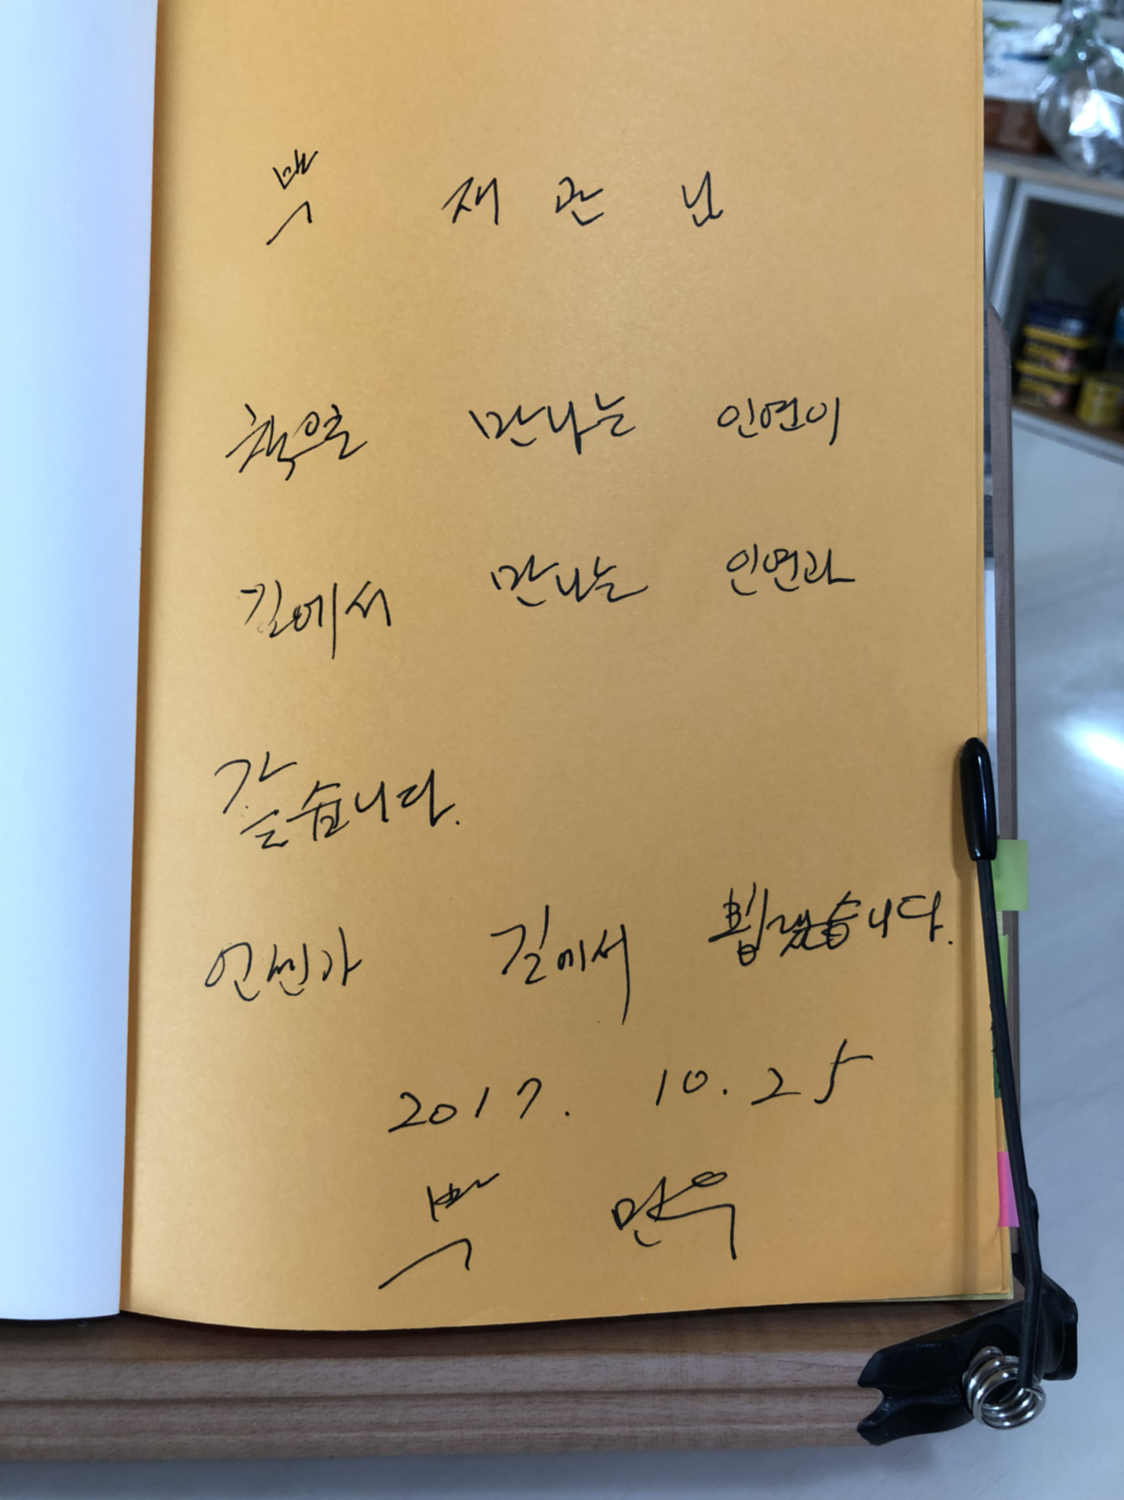 박 재관 님
책으로 만나는 인연이
길에서 만나는 인연과
같습니다.
언젠가 길에서 뵙겠습니다.
2017. 10. 25
박 만우